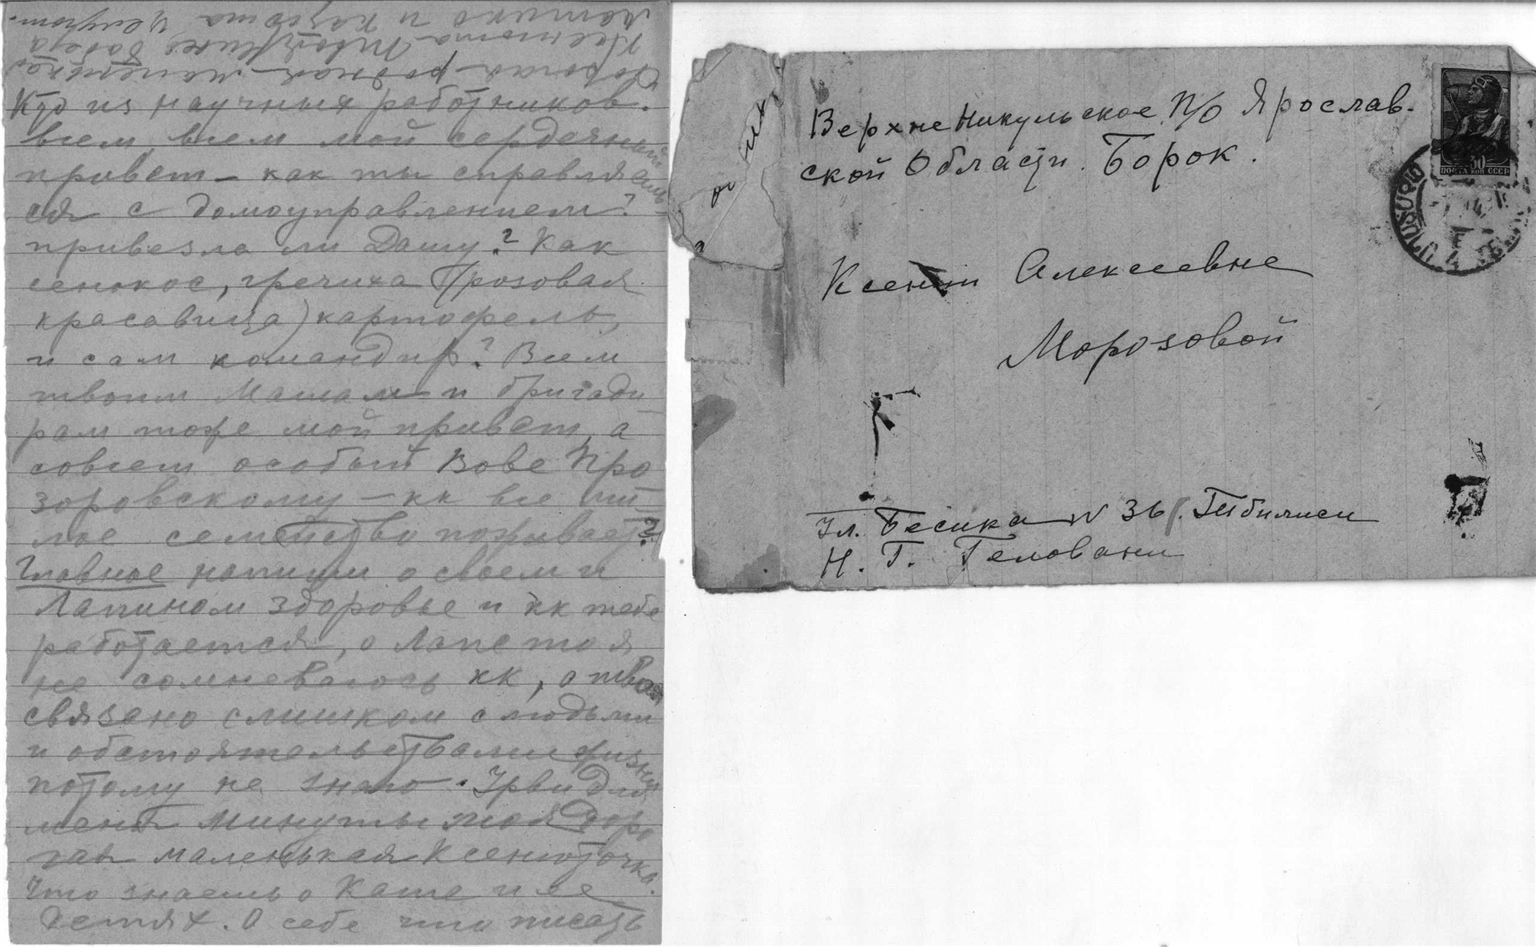 Дорогая родная маленькая
Ксенюта
Кто из научных работников.
всем, всем мой сердечный
привет – как ты справляешь
ся с домоуправлением?
привезла ли Дашу? Как
сенокос, гречиха (розовая
красавица) картофель,
и сам командир? Всем
твоим Машам и бригади
рам тоже мой привет, а
совсем особый Вове Про
зоровскому – кк все ми
лое семейство поживает?
Главное напиши о своем и
Лапином здоровье и кк тебе
работается, о Лапе то я
не сомневаюсь кк, а твоя
связано слишком с людьми
и обстоятельствами жизни
потому не знаю. Урви для
меня минуты моя доро
гая маленькая Ксенюточка.
Что знаешь о Кате и ее
детях. О себе что писать
Верхне Никульское П/О Ярослав-
ской Области. Борок.
Ксении Алексеевне
Морозовой
Ул. Бесики N 36. Тбилиси
Н. Г. Геловани
30
ПОЧТА СССР